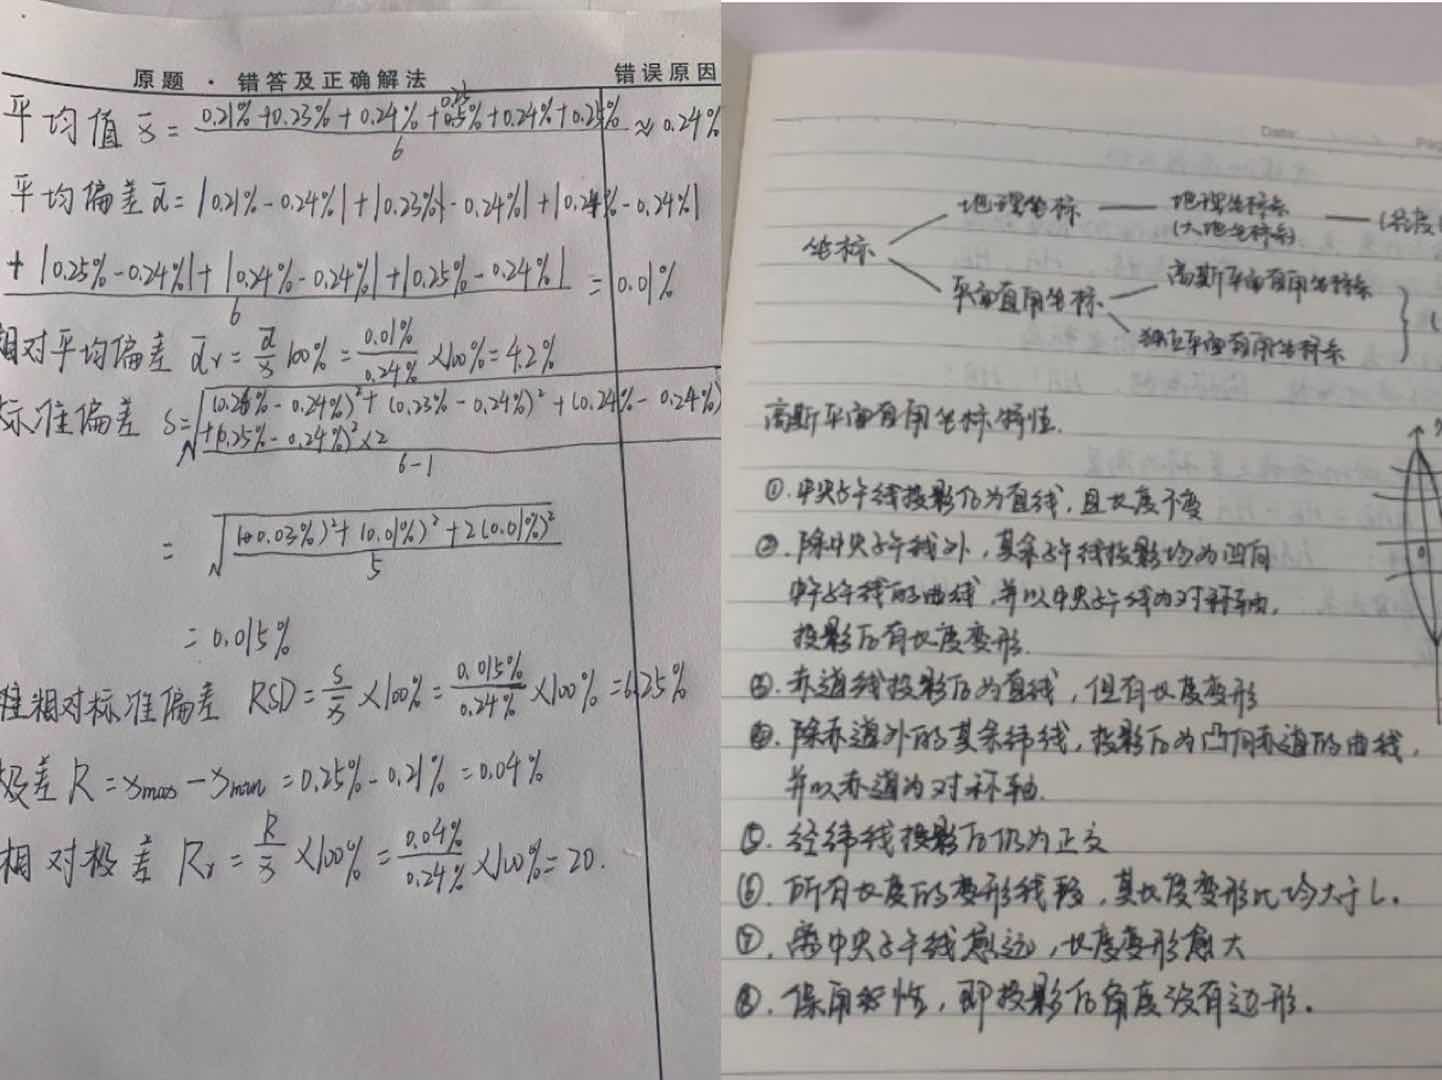 原题 · 错答及正确解法 错误原因
平均值 x̄ = (0.21%+0.23%+0.24%+0.25%+0.24%+0.25%)/6 ≈ 0.24%
平均偏差 d̄ = |0.21%-0.24%|+|0.23%-0.24%|+|0.24%-0.24|
+|0.25%-0.24%|+|0.24%-0.24%|+|0.25%-0.24%| = 0.01%
6
相对平均偏差 d̄r = d̄/x̄ 100% = 0.01%/0.24% ×100% = 4.2%
标准偏差 S = √(0.26%-0.24%)²+(0.23%-0.24%)²+(0.24%-0.24%)
+(0.25%-0.24%)²×2
6-1
= √((0.03%)²+(0.01%)²+2(0.01%)²)/5
= 0.015%
相对标准偏差 RSD = S/x̄ ×100% = 0.015%/0.24% ×100% = 6.25%
极差 R = xmax - xmin = 0.25%-0.21% = 0.04%
相对极差 Rr = R/x̄ ×100% = 0.04%/0.24% ×100% = 20.
Date:
坐标
地理坐标 — 地理坐标系
(大地坐标系)
平面直角坐标
高斯平面直角坐标系
独立平面直角坐标系
高斯平面直角坐标特性.
①.中央子午线投影后为直线,且长度不变
②.除中央子午线外,其余子午线投影均为凹向
中子午线的曲线,并以中央子午线为对称轴.
投影后有长度变形.
③.赤道线投影后为直线,但有长度变形
④.除赤道外的其余纬线,投影后为凸向赤道的曲线,
并以赤道为对称轴.
⑤.经纬线投影后仍为正交
⑥.所有长度的变形线段,其长度变形比均大于1.
⑦.离中央子午线愈远,长度变形愈大
⑧.保角性,即投影后角度没有边形.